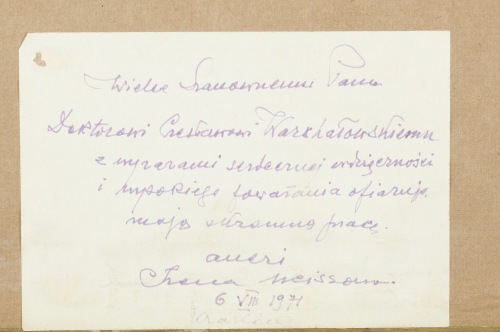 Wielce Szanownemu Panu
Doktorowi Czesławowi Warchałowskiemu
z wyrazami serdecznej wdzięczności
i wysokiego poważania ofiaruję
moją skromną pracę.
Irena Weissowa
6 VIII 1971